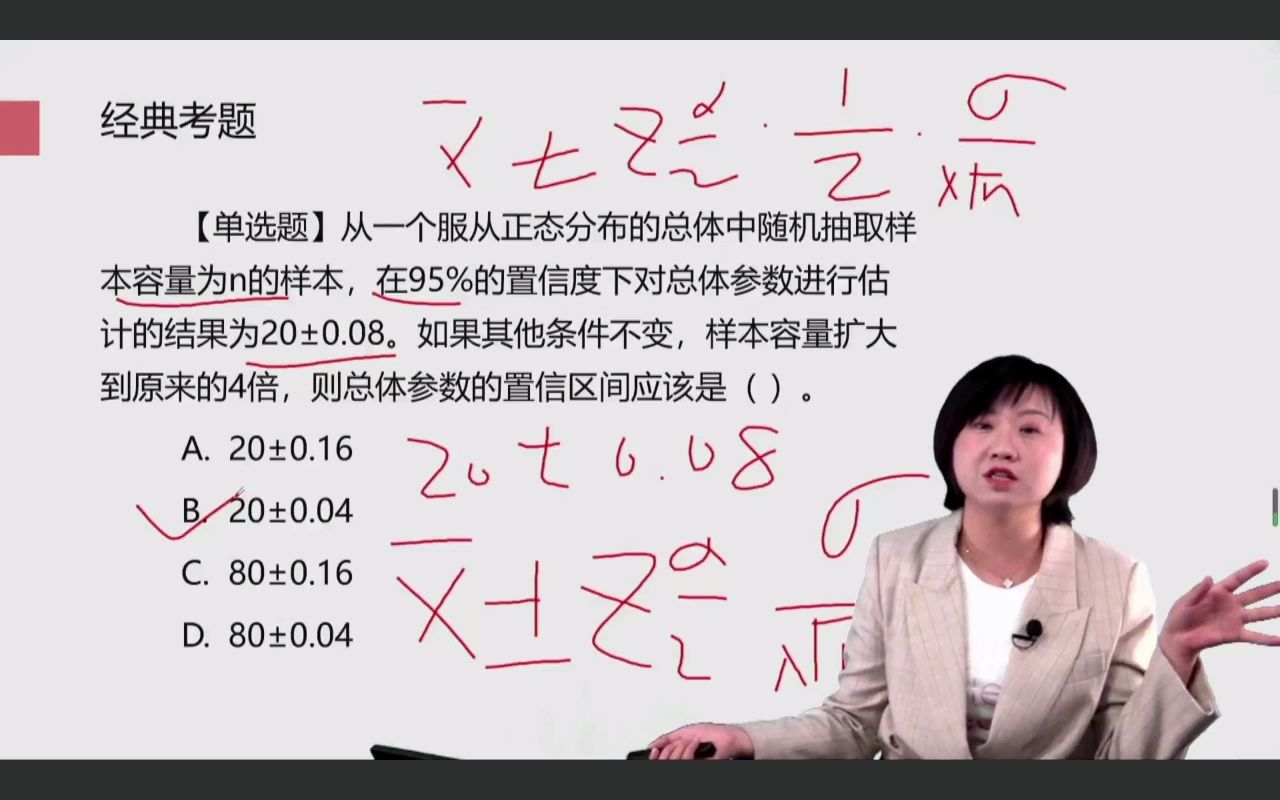 经典考题
x̄ ± Z α/2 · 1/2 · σ/√n
【单选题】从一个服从正态分布的总体中随机抽取样
本容量为n的样本，在95%的置信度下对总体参数进行估
计的结果为20±0.08。如果其他条件不变，样本容量扩大
到原来的4倍，则总体参数的置信区间应该是（ ）。
A. 20±0.16
20 ± 0.08
B. 20±0.04
C. 80±0.16
x̄ ± Z α/2 σ/√
D. 80±0.04